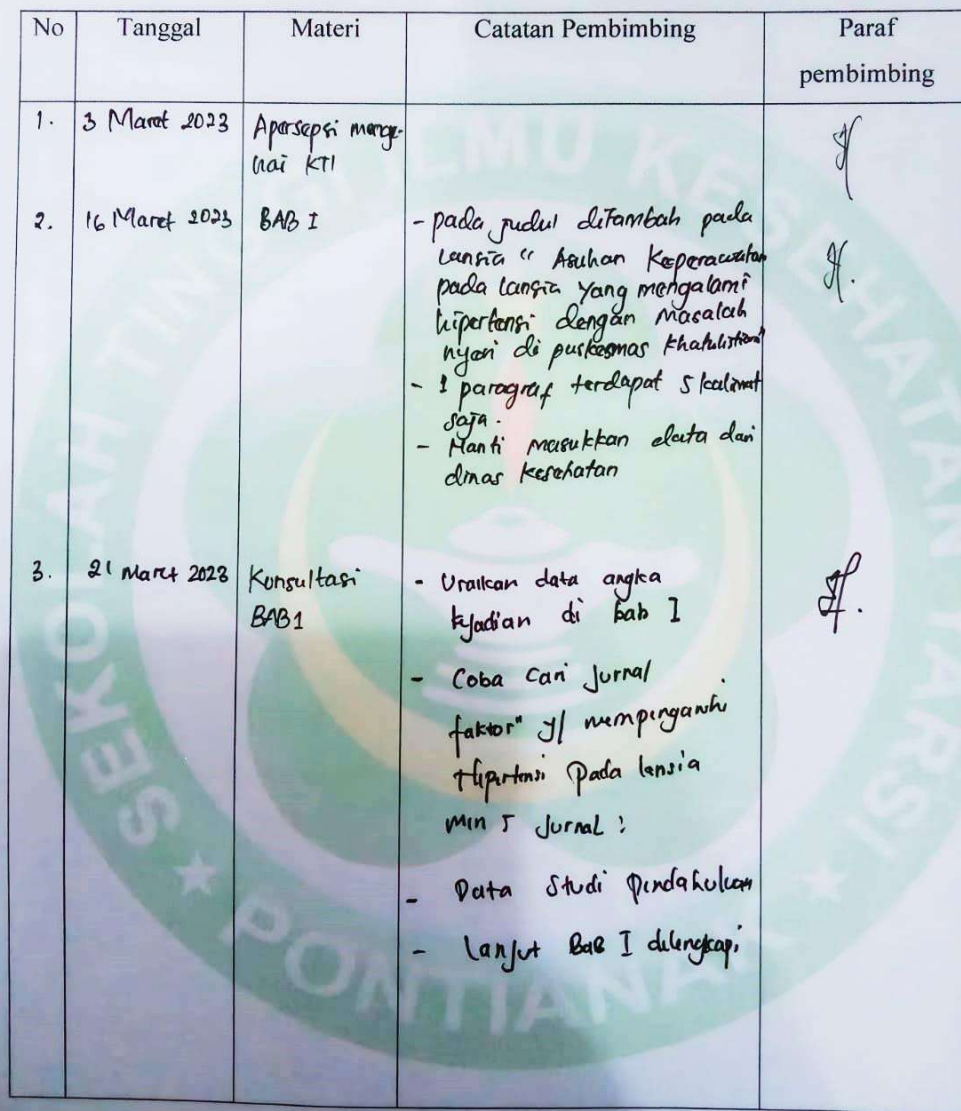 No Tanggal Materi Catatan Pembimbing Paraf
pembimbing
1. 3 Maret 2023 Apersepsi menge-
nai KTI
2. 16 Maret 2023 BAB I - pada judul ditambah pada
Lansia " Asuhan Keperawatan
pada lansia yang mengalami
hipertensi dengan masalah
nyeri di puskesmas Khatulistiwa"
- 1 paragraf terdapat 5 kalimat
saja.
- Nanti masukkan data dari
dinas kesehatan
3. 21 Maret 2023 Konsultasi - Uraikan data angka
BAB1 kejadian di bab I
- Coba cari Jurnal
faktor" yg mempengaruhi
Hipertensi Pada lansia
min 5 Jurnal :
- Data Studi pendahuluan
- Lanjut BAB I dilengkapi
SEKOLAH TINGGI ILMU KESEHATAN YARSI
★ PONTIANAK ★